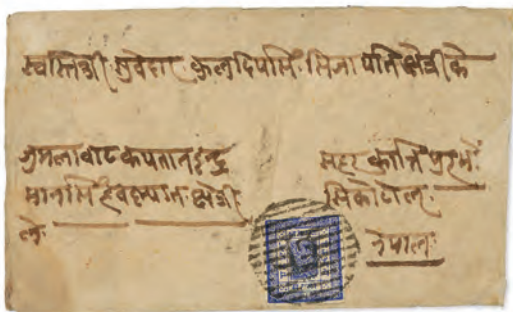 स्वस्तिश्री सुवेदार कुलदिपसिं सिजापति क्षेत्रीके
जुमलावाट कपतान इन्द्र
मानसिं क्षेत्री
ले
सहर कान्तिपुरमे
सिकोटोल
नेपाल